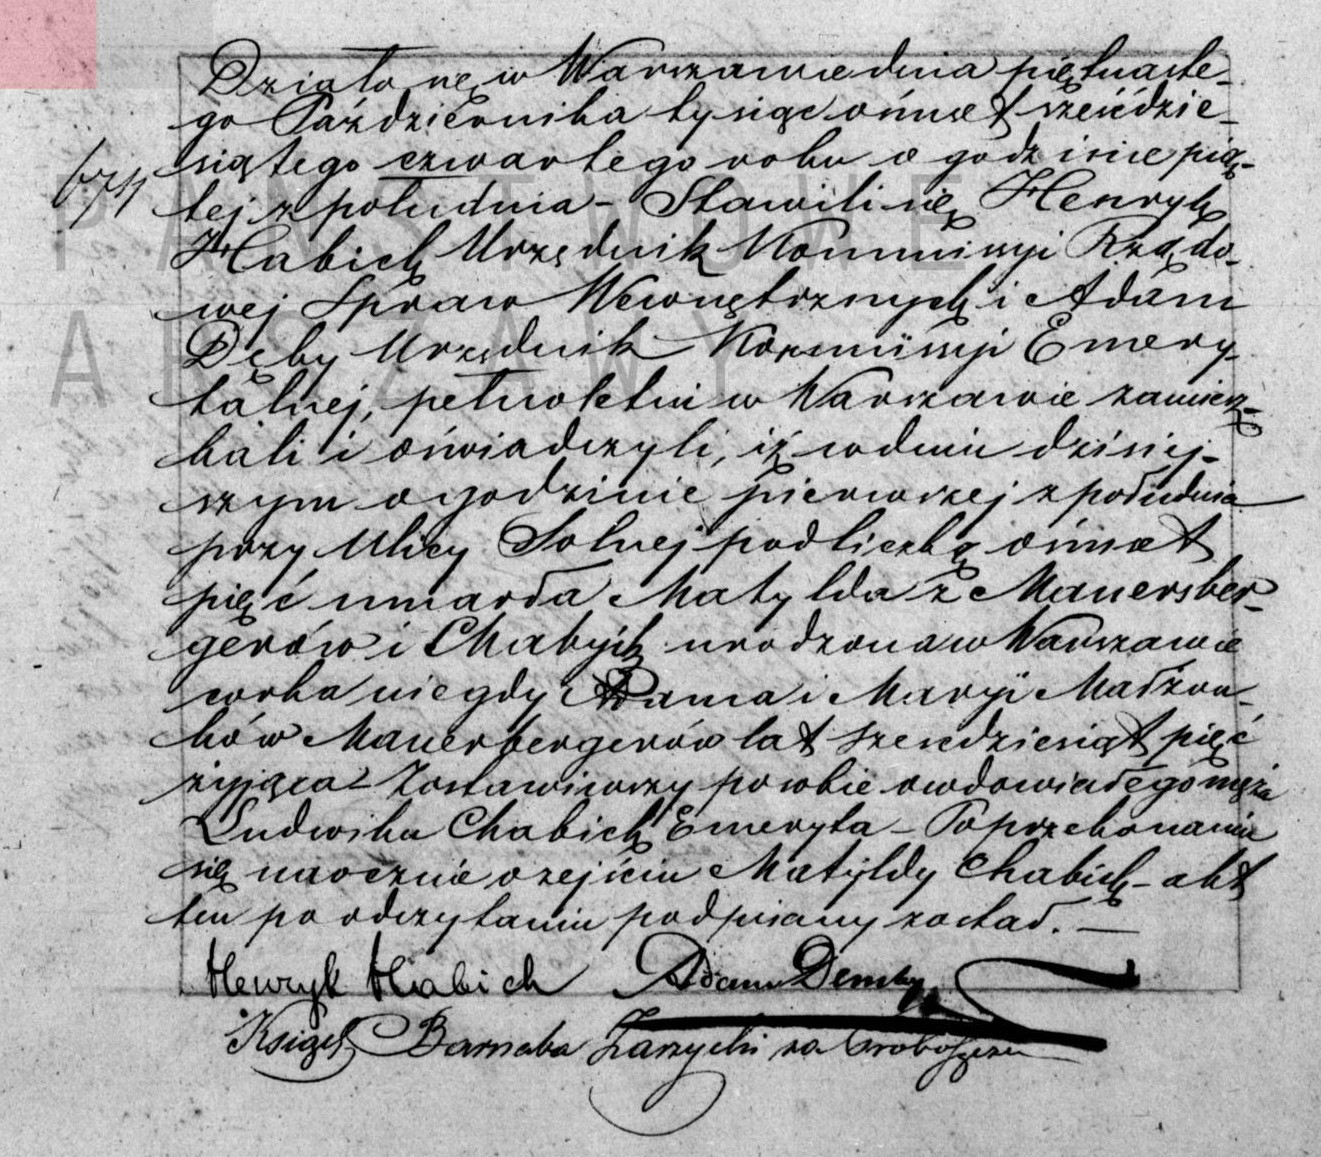 Działo się w Warszawie dnia piętnaste-
go Października tysiąc ośmset sześćdzie-
siątego czwartego roku o godzinie pią-
677
tej z południa – Stawili się Henryk
Habich Urzędnik Kommissyi Rządo-
wej Spraw Wewnętrznych i Adam
Dęby Urzędnik Kommissyi Emery-
talnej, pełnoletni w Warszawie zamiesz-
kali i oświadczyli, iż w dniu dzisiej-
szym o godzinie pierwszej z południa
przy Ulicy Solnej pod liczbą ośmset
pięć umarła Matylda z Mauersber-
gerów i Chabich urodzona w Warszawie
corka niegdy Adama i Maryi Małżon-
ków Mauerbergerów lat sześcdziesiąt pięć
żyjąca – Zostawiwszy po sobie owdowiałego męża
Ludwika Chabich Emeryta – Po przekonaniu
się naocznie o zejściu Matyldy Chabich – akt
ten po odczytaniu podpisany został. —
Henryk Habich Adam Demby
Ksiądz Barnaba Zarzycki za Proboszcza
PAŃSTWOWE
WARSZAWY